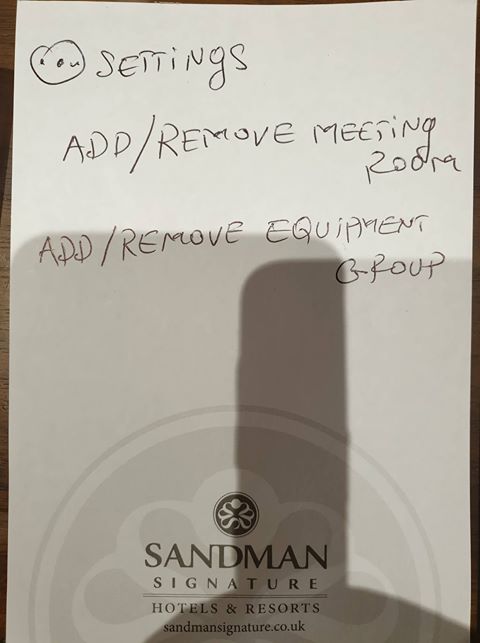 SETTINGS
ADD/REMOVE MEETING
ROOM
ADD/REMOVE EQUIPMENT
GROUP
SANDMAN
SIGNATURE
HOTELS & RESORTS
sandmansignature.co.uk